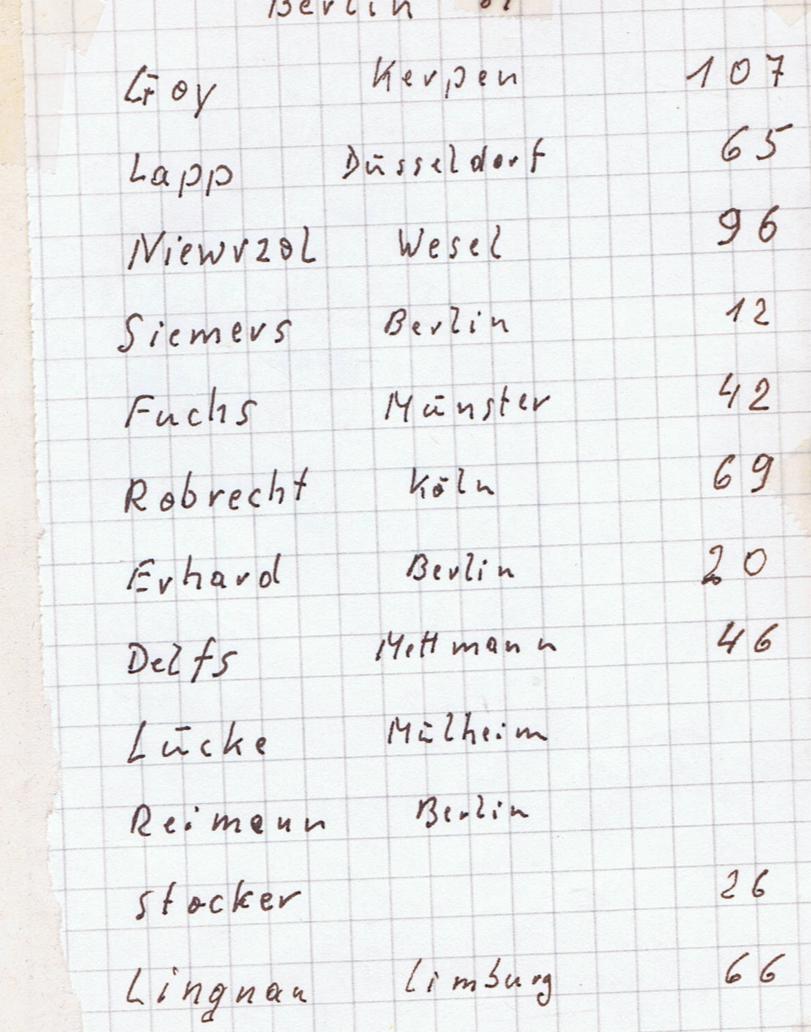 Berlin
Goy Kerpen 107
Lapp Düsseldorf 65
Niewrzol Wesel 96
Siemers Berlin 12
Fuchs Münster 42
Robrecht Köln 69
Erhard Berlin 20
Delfs Mettmann 46
Lücke Mülheim
Reimann Berlin
Stocker 26
Lingnau Limburg 66